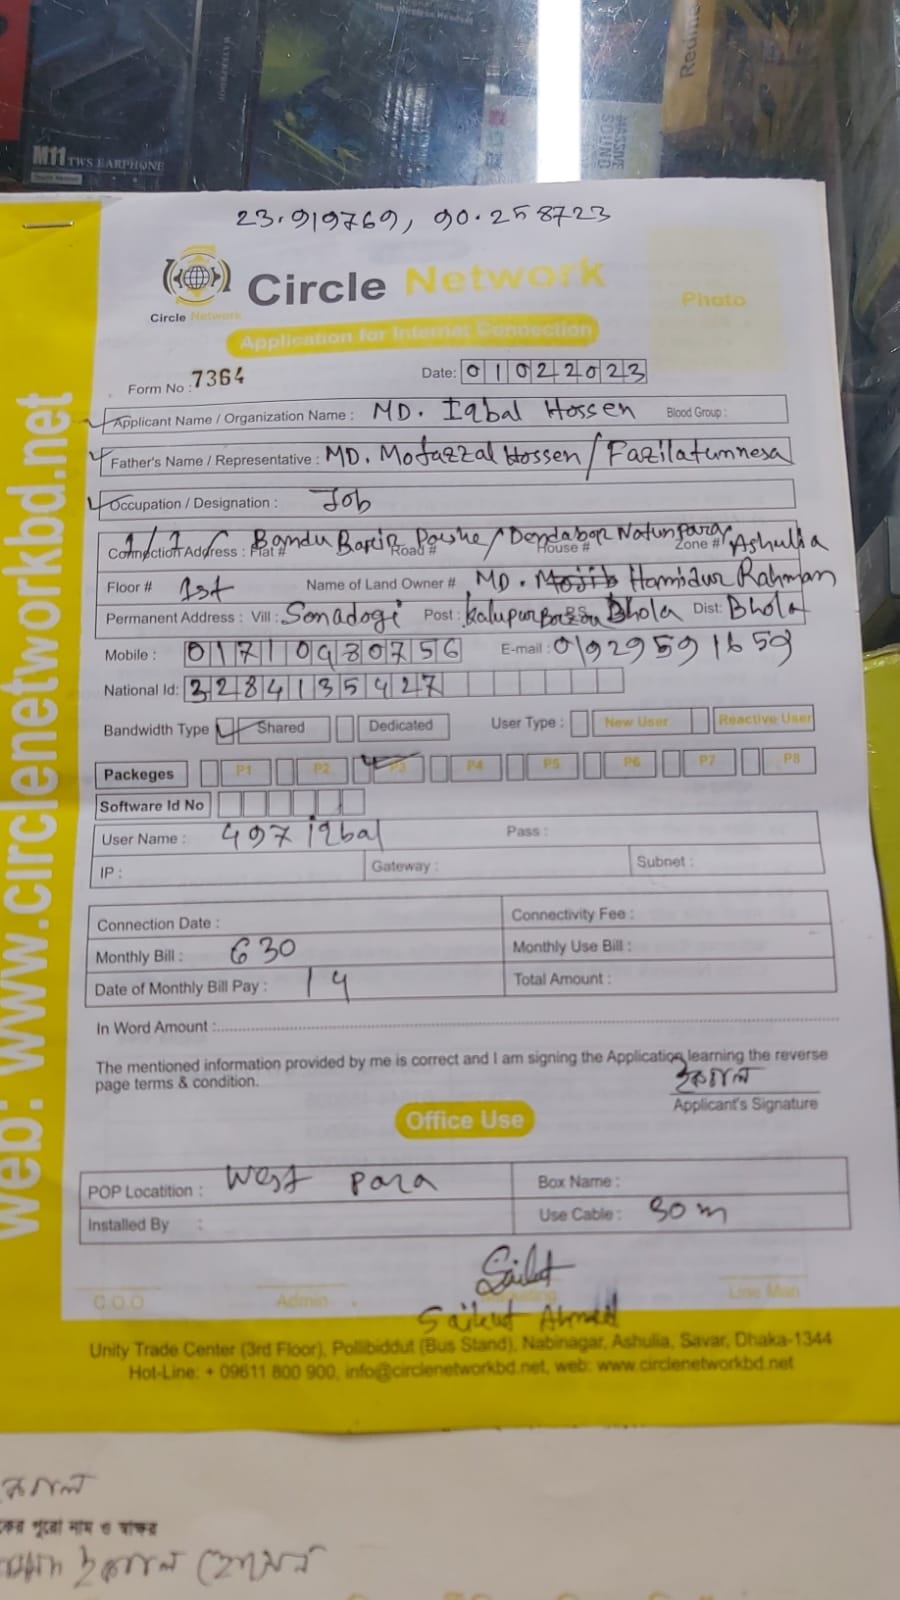 M11 TWS EARPHONE
23.919769, 90.258723
Circle Network
Circle Network
Photo
Application for Internet Connection
Form No : 7364 Date: 01022023
Applicant Name / Organization Name : MD. Iqbal Hossen Blood Group :
Father's Name / Representative : MD. Mofazzal Hossen / Fazilatunnesa
Occupation / Designation : Job
Connection Address : Flat # Road # House # Zone # Ashulia
Floor # 1st Name of Land Owner # MD. Hamidur Rahman
Permanent Address : Vill : Sonadogi Post : Kalupur Bhola Dist: Bhola
Mobile : E-mail : 01929591659
National Id: 3284135427
Bandwidth Type Shared Dedicated User Type : New User Reactive User
Packeges P1 P2 P3 P4 P5 P6 P7 P8
Software Id No
User Name : 497 iqbal Pass :
IP : Gateway : Subnet :
Connection Date : Connectivity Fee :
Monthly Bill : 630 Monthly Use Bill :
Date of Monthly Bill Pay : 14 Total Amount :
In Word Amount :
The mentioned information provided by me is correct and I am signing the Application learning the reverse
page terms & condition.
ইকবাল
Applicant's Signature
Office Use
POP Locatition : West para Box Name :
Installed By : Use Cable : 30 m
C.O.O Admin Line Man
Saikut Ahmed
Unity Trade Center (3rd Floor), Pollibiddut (Bus Stand), Nabinagar, Ashulia, Savar, Dhaka-1344
Hot-Line: + 09611 800 900, info@circlenetworkbd.net, web: www.circlenetworkbd.net
web: www.circlenetworkbd.net
পুরো নাম ও স্বাক্ষর
ইকবাল হোসেন